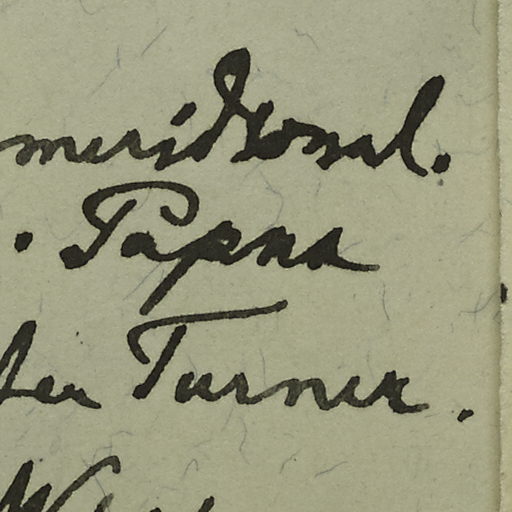 meridional.
. Papua
ter Turner.